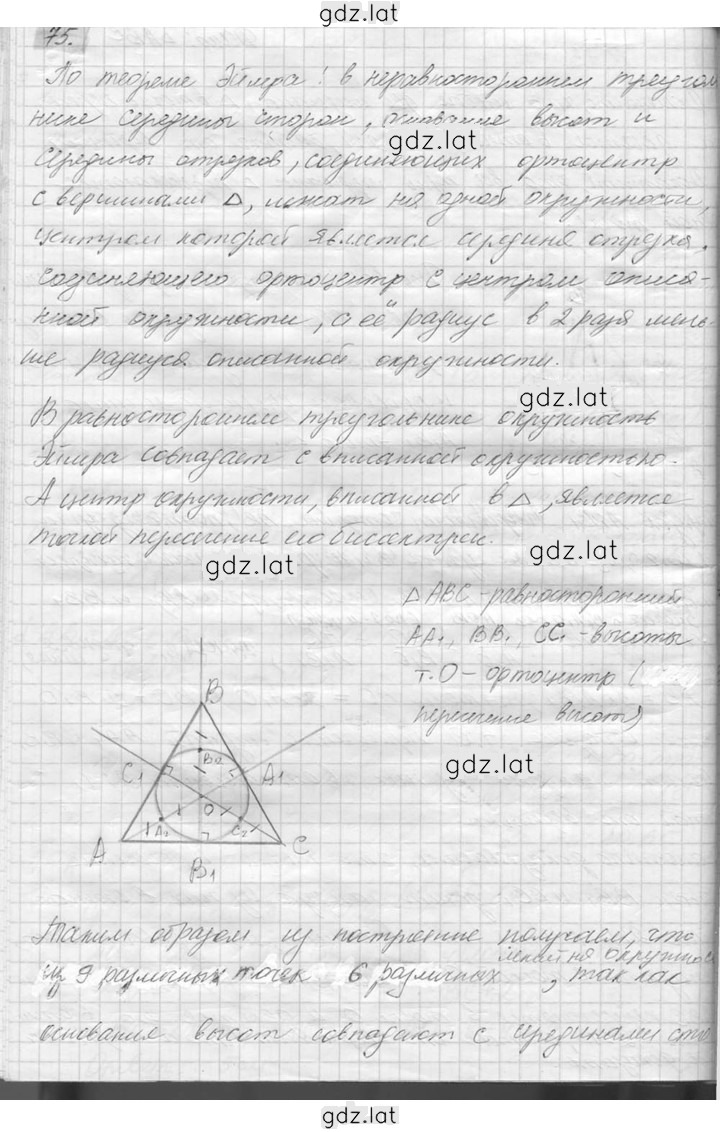 gdz.lat
75.
По теореме Эйлера! в неравностороннем треугол
нике середины сторон, основание высот и
gdz.lat
середины отрезков, соединяющих ортоцентр
с вершинами Δ, лежат на одной окружности,
центром которой является середина отрезка,
соединяющего ортоцентр с центром описа-
нной окружности, а её радиус в 2 раза мень-
ше радиуса описанной окружности.
gdz.lat
В равностороннем треугольнике окружность
Эйлера совпадает с вписанной окружностью.
А центр окружности, вписанной в Δ, является
точкой пересечение его биссектрис.
gdz.lat
gdz.lat
Δ ABC - равносторонний
AA1, BB1, CC1 - высоты
т.O - ортоцентр (
пересечение высот)
gdz.lat
B
B2
C1
A1
O
A2
C2
A
C
B1
Таким образом из построение получаем, что
лежит на окружнос
из 9 различных точек 6 различных , так как
основания высот совпадают с серединами сто
gdz.lat